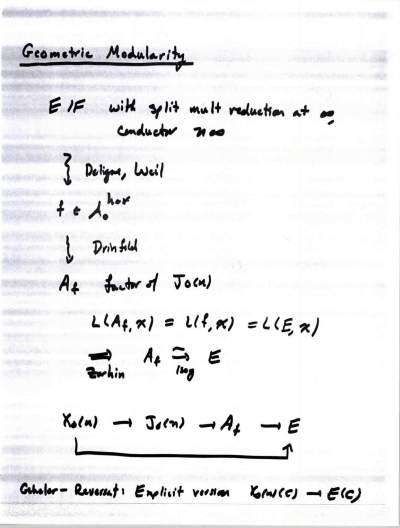 Geometric Modularity
E/F with split mult reduction at ∞,
conductor n∞
Deligne, Weil
f ∈ A₀^har
Drinfeld
A_f factor of J₀(n)
L(A_f, χ) = L(f, χ) = L(E, χ)
⟹ A_f → E
Zarhin isog
X₀(n) → J₀(n) → A_f → E
Gekeler - Reversat: Explicit version X₀(n)(C) → E(C)